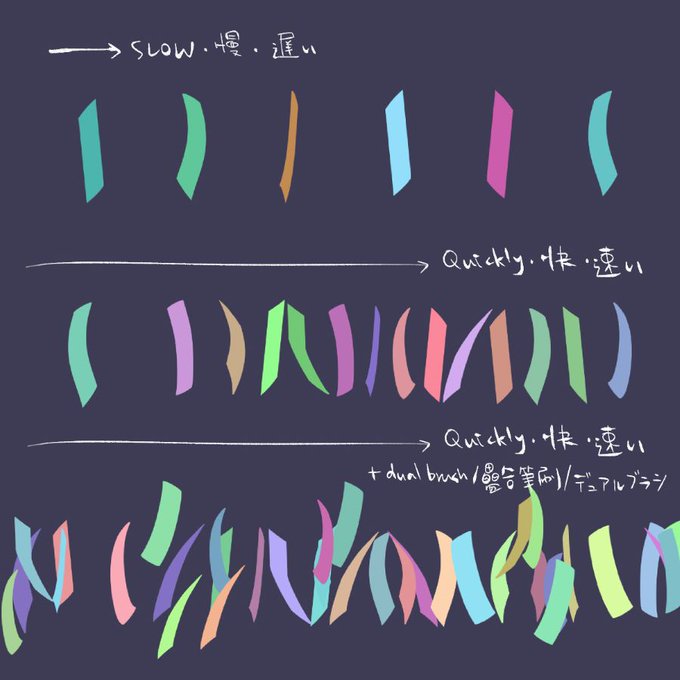 SLOW・慢・遅い
Quickly・快・速い
Quickly・快・速い
+ dual brush/疊合筆刷/デュアルブラシ